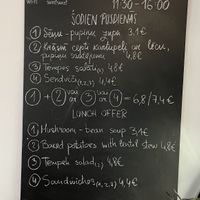 11:30 - 16:00
ŠODIEN PUSDIENAS
① Sēņu - pupiņu zupa 3.1€
② Krāsnī cepti kartupeļi ar lēcu,
4,8€
③ Tempes salāti 4,8€
④ Sendvičs 4,4€
① + ② vai ③ vai ④ = 6,8 / 7,4€
LUNCH OFFER
① Mushroom - bean soup 3.1€
② Baked potatoes with lentil stew 4.8€
③ Tempeh salad 4,8€
④ Sandwiches 4,4€